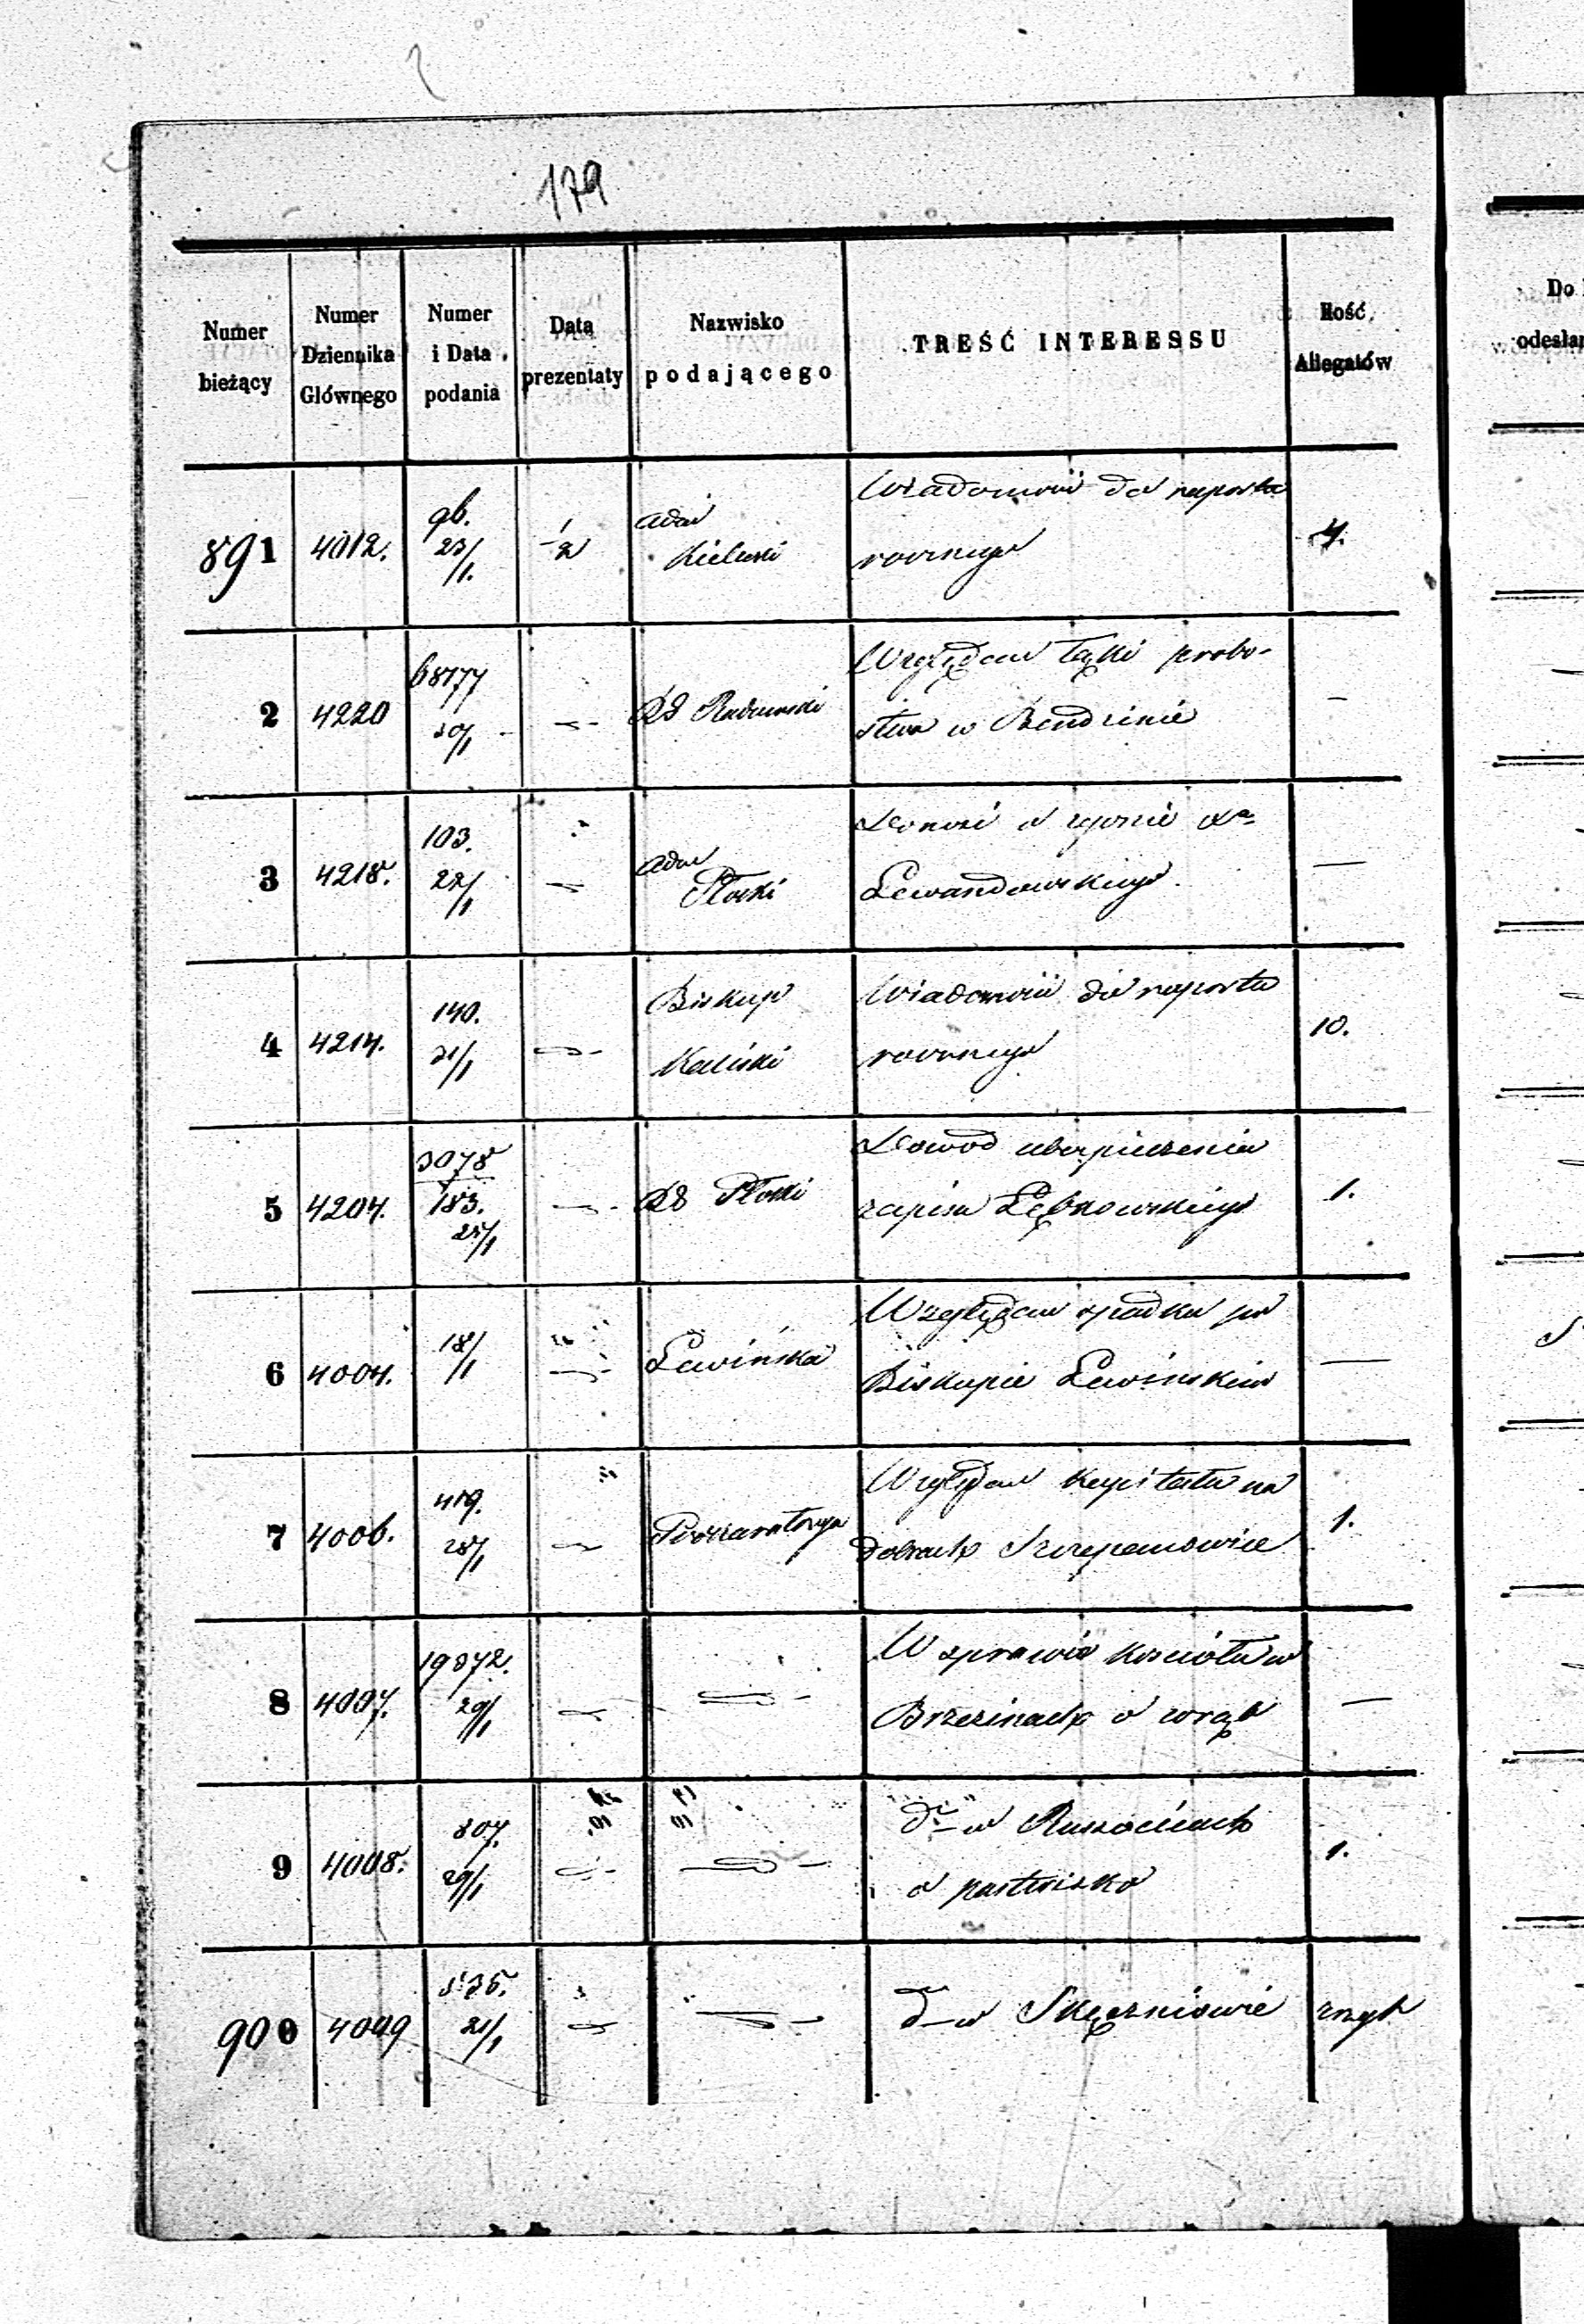 179
Numer bieżący
Numer Dziennika Głównego
Numer i Data podania
Data prezentaty
Nazwisko podającego
TREŚĆ INTERESSU
Ilość Allegatów
Do
odesłan
891 4012. 96. 23/1. 1/2 Adm Kielecki
Wiadomości do raportu
rocznego
4.
2 4220 68177 30/1 RG Radomski
Względem łąki probo-
stwa w Bendzinie
—
3 4218. 103. 22/1 Adm Płocki
Donosi o zgonie Xa
Lewandowskiego.
—
4 4214. 140. 31/1 Biskup Kaliski
Wiadomości do raportu
rocznego
10.
5 4204. 3078 183. 25/1 RG Płocki
Dowód ubezpieczenia
zapisu Łębkowskiego
1.
6 4004. 18/1 Lewińska
Względem spadku po
Biskupie Lewińskim
—
7 4006. 419. 28/1 Prokuratorya
Względem kapitału na
dobrach Szczepanowice
1.
8 4007. 19872. 29/1
W sprawie kościoła w
Brzezinach o wrąb
—
9 4008. 807. 29/1
do w Ruszocicach
o pastwisko
1.
900 4009 535. 21/1
do w Skęczniewie
zszyt